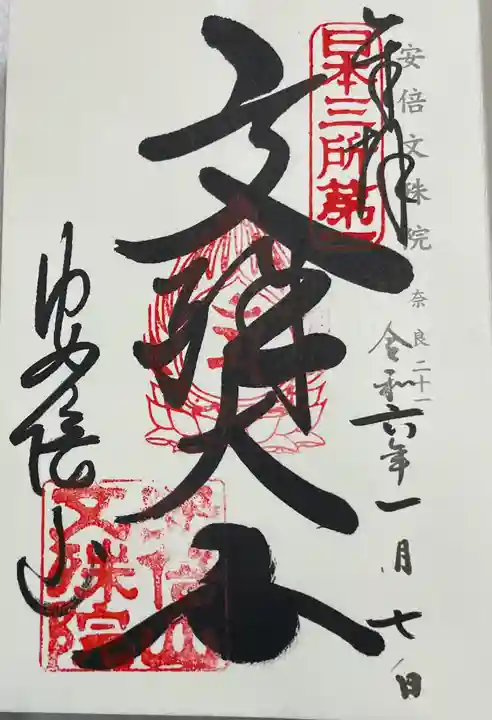 安倍文殊院 奈良二十一
奉拝
日本三所第一
令和六年一月七日
文殊大士
安倍山
文殊院